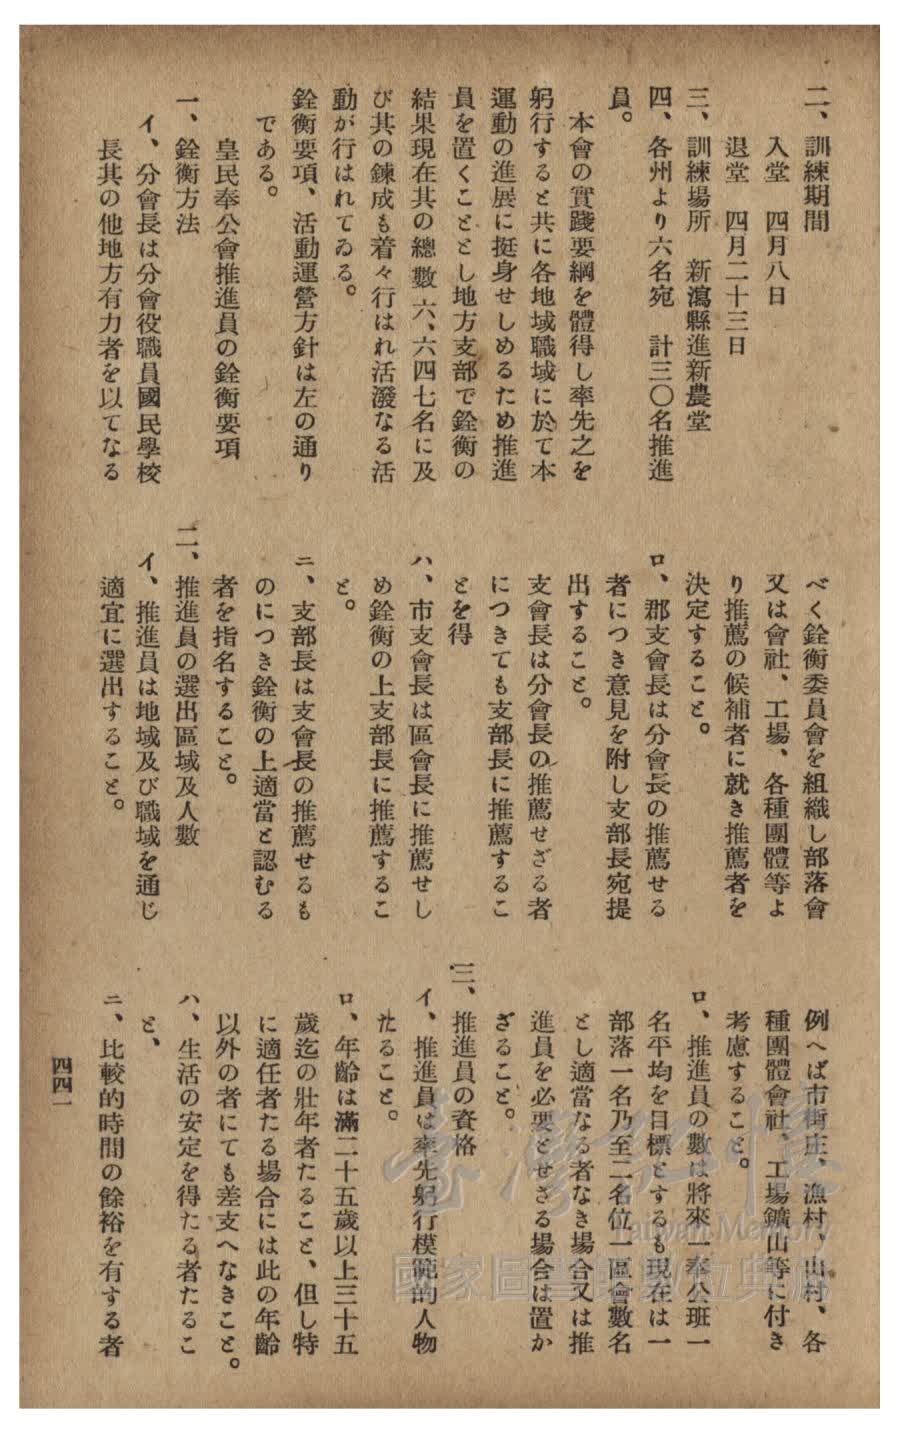 二、訓練期間
入堂　四月八日
退堂　四月二十三日
三、訓練場所　新瀉縣進新農堂
四、各州より六名宛　計三〇名推進
員。
本會の實踐要綱を體得し率先之を
躬行すると共に各地域職域に於て本
運動の進展に挺身せしめるため推進
員を置くこととし地方支部で銓衡の
結果現在其の總數六、六四七名に及
び其の鍊成も着々行はれ活潑なる活
動が行はれてゐる。
銓衡要項、活動運營方針は左の通り
である。
皇民奉公會推進員の銓衡要項
一、銓衡方法
イ、分會長は分會役職員國民學校
長其の他地方有力者を以てなる
べく銓衡委員會を組織し部落會
又は會社、工場、各種團體等よ
り推薦の候補者に就き推薦者を
決定すること。
ロ、郡支會長は分會長の推薦せる
者につき意見を附し支部長宛提
出すること。
支會長は分會長の推薦せざる者
につきても支部長に推薦するこ
とを得
ハ、市支會長は區會長に推薦せし
め銓衡の上支部長に推薦するこ
と。
ニ、支部長は支會長の推薦せるも
のにつき銓衡の上適當と認むる
者を指名すること。
二、推進員の選出區域及人數
イ、推進員は地域及び職域を通じ
適宜に選出すること。
例へば市街庄、漁村、山村、各
種團體會社、工場鑛山等に付き
考慮すること。
ロ、推進員の數は將來一奉公班一
名平均を目標とするも現在は一
部落一名乃至二名位一區會數名
とし適當なる者なき場合又は推
進員を必要とせざる場合は置か
ざること。
三、推進員の資格
イ、推進員は率先躬行模範的人物
たること。
ロ、年齡は滿二十五歲以上三十五
歲迄の壯年者たること、但し特
に適任者たる場合には此の年齡
以外の者にても差支へなきこと。
ハ、生活の安定を得たる者たるこ
と、
ニ、比較的時間の餘裕を有する者
四四一
臺灣記憶
Taiwan Memory
國家圖書館數位典藏